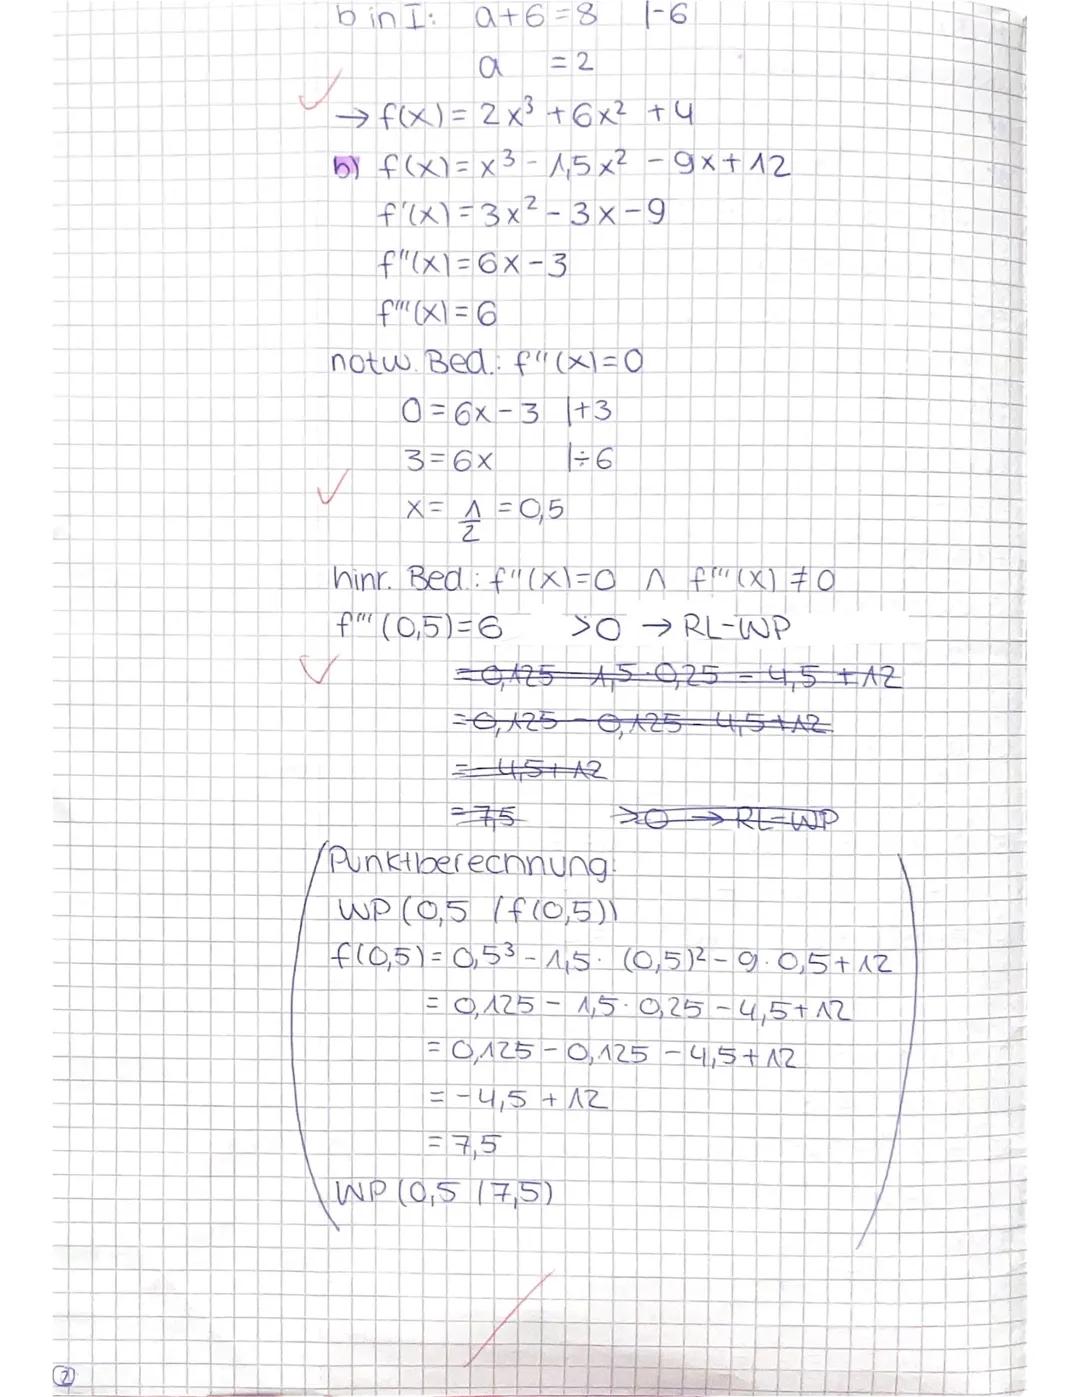 b in I: a+6=8 |-6
a =2
→ f(x)= 2x³ +6x² +4
b) f(x)= x³ - 1,5x² - 9x+12
f'(x)=3x² - 3x-9
f''(x)=6x-3
f'''(x)=6
notw. Bed.: f''(x)=0
0=6x-3 |+3
3=6x |÷6
x= 1/2 =0,5
hinr. Bed.: f''(x)=0 ∧ f'''(x) ≠0
f'''(0,5)=6 >0 → RL-WP
=0,125 - 1,5·0,25 - 4,5 +12
=0,125 - 0,125 - 4,5+12
= -4,5+12
=7,5 >0 → RL-WP
Punktberechnung:
WP(0,5 /f(0,5))
f(0,5)= 0,5³ - 1,5· (0,5)² - 9·0,5+12
= 0,125 - 1,5·0,25 - 4,5+12
= 0,125 - 0,125 - 4,5+12
= -4,5 +12
= 7,5
WP(0,5 /7,5)
2